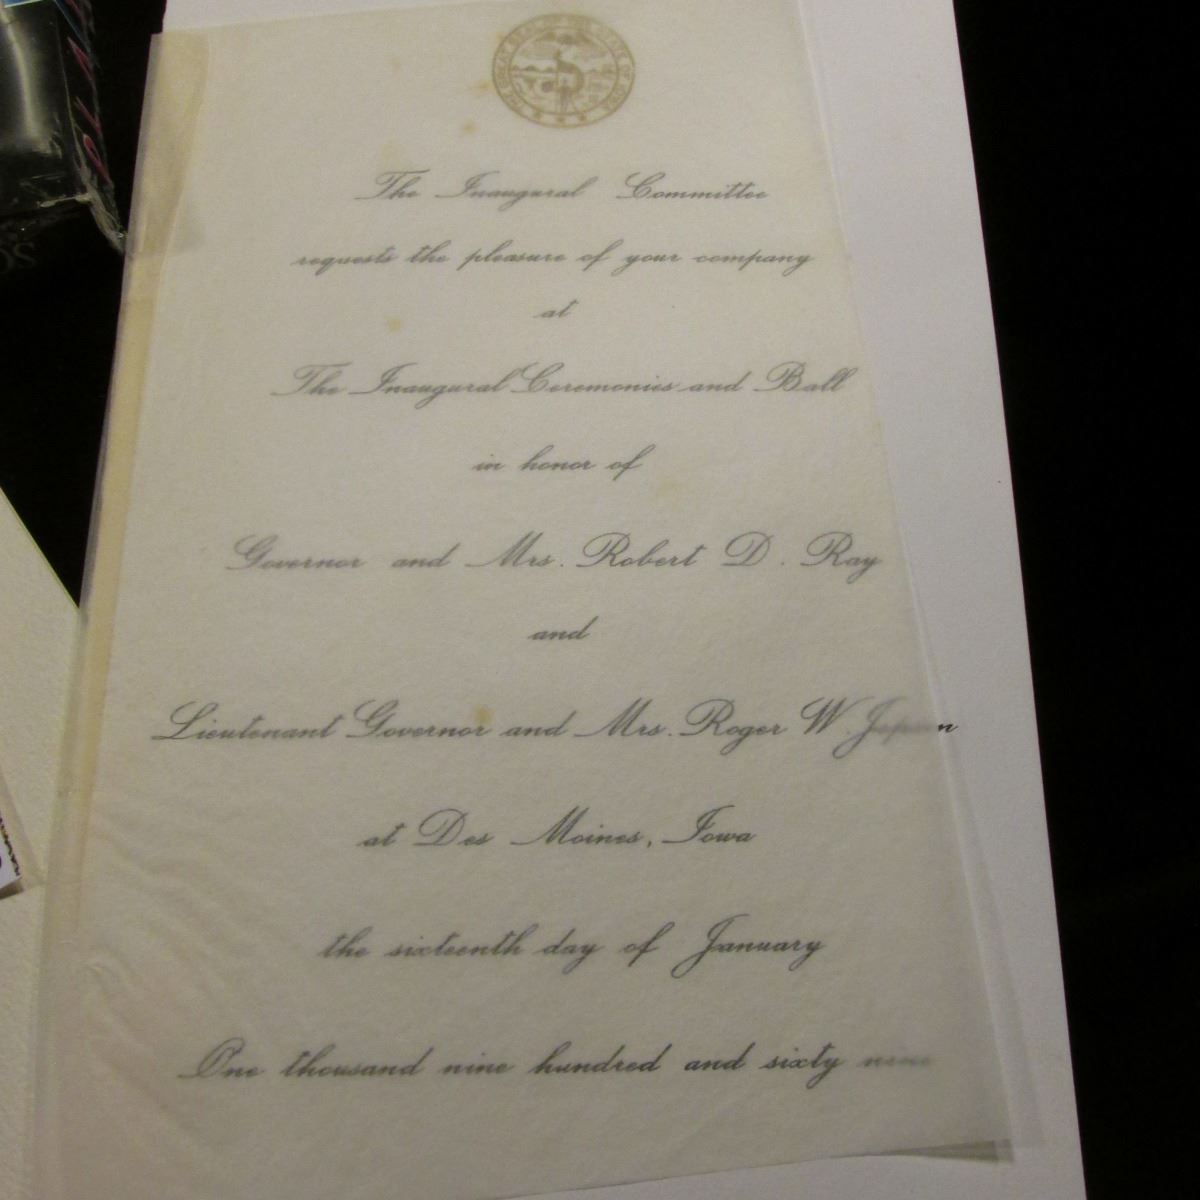 THE GREAT SEAL OF THE STATE OF IOWA
The Inaugural Committee
requests the pleasure of your company
at
The Inaugural Ceremonies and Ball
in honor of
Governor and Mrs. Robert D. Ray
and
Lieutenant Governor and Mrs. Roger W. Jepsen
at Des Moines, Iowa
the sixteenth day of January
One thousand nine hundred and sixty nine